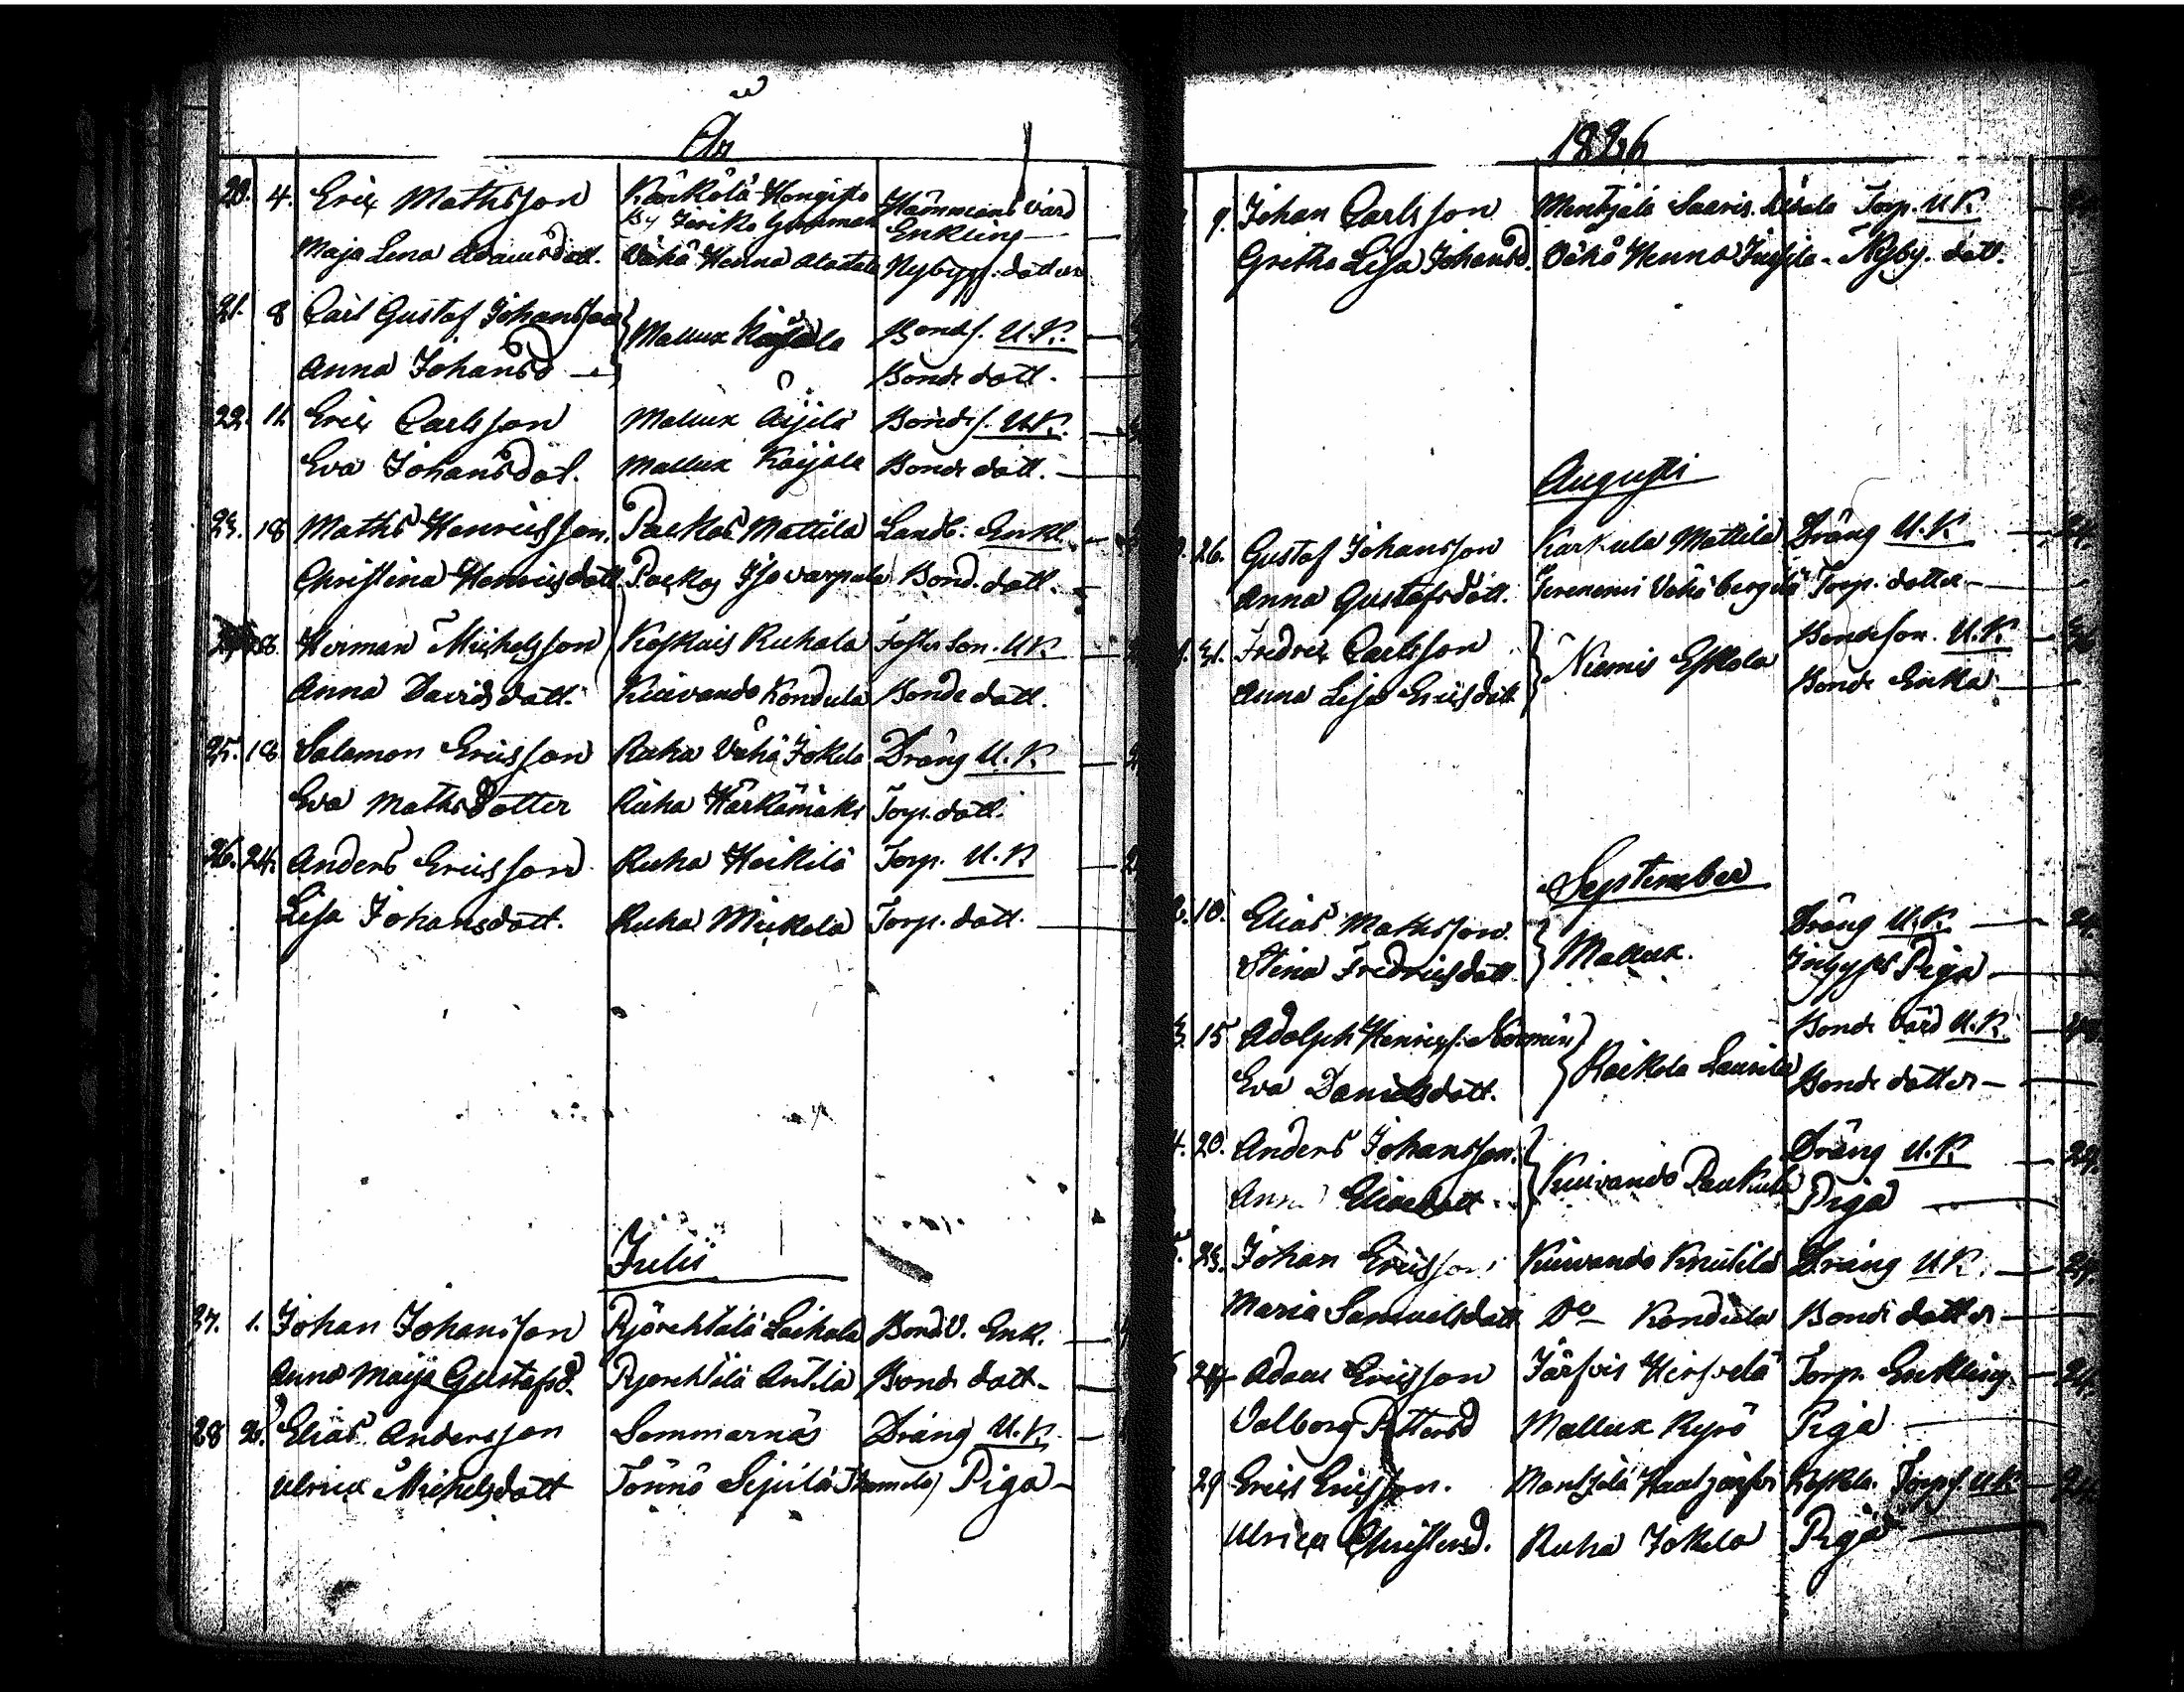 År
20. 4. Eric Mathsson Kärkölä Hongisto Hämmans värd
Enkling
Maja Lena Adamsdott. Vähä Henna Alastalo Nybygg. dotter
21. 8 Carl Gustaf Johansson Mallux Bonds. U.K.
Anna Johansd Bonde dott.
22. 11. Eric Carlsson Mallux Äijälä Bonds. U.K.
Eva Johansdot. Mallux Käijälä Bonde dott.
23. 18 Maths Henricsson. Packas Mattila Landb. Enkl.
Christina Henricsdott. Packas Isovarpala Bond. dott.
18. Herman Michelsson Koskais Ruhala Foster Son. U.K.
Anna Davidsdott. Kuivando Kondula Bonde dott.
25. 18 Salomon Ericsson Ruha Vähä Jokela Dräng U.K.
Eva Mathsdotter Ruha Härkämäki Torp. dott.
26. 24. Anders Ericsson Ruha Heikilä Torp. U.K.
Lisa Johansdott. Ruha Mickola Torp. dott.
Julii
27. 1. Johan Johansson Pyörehtälä Laihala Bond. V. Enk.
Anna Maija Gustafsd. Pyörehtälä Antila Bonde dott.
28 2. Elias Andersson Sommarnäs Dräng U.K.
Ulrica Michelsdott Tönnö Sipilä Piga
1826
9. Johan Carlsson Mentjälä Saaris Torp. U.K.
Gretha Lisa Johansd. Vähä Henna Nyby. dott.
Augusti
26. Gustaf Johansson Karkula Mattila Dräng U.K.
Anna Gustafsdott. Vähä Torp. dotter
31. Fredric Carlsson Niemis Eskola Bondeson. U.K.
Anna Lisa Ericsdott Bonde Enka
September
10. Elias Mathsson. Mallux. Dräng U.K.
Stina Fredricsdott. Inhyses Piga
15 Adolph Henrics. Koikola Laurila Bonde värd U.K.
Eva Danielsdott. Bonde dotter
20. Anders Johansson. Kuivando Dräng U.K.
Anna Eliaedott Piga
23. Johan Ericsson Kuivando Knuutila Dräng U.K.
Maria Samuelsdott Do Kondula Bonde dotter
Adam Ericsson Järfvis Hirfvelä Torp. Enkling
Valborg Pettersd Mallux Kyrö Piga
29 Eric Ericsson. Koskela. Torps. U.K.
Ulrica Christersd. Ruha Jokela Piga